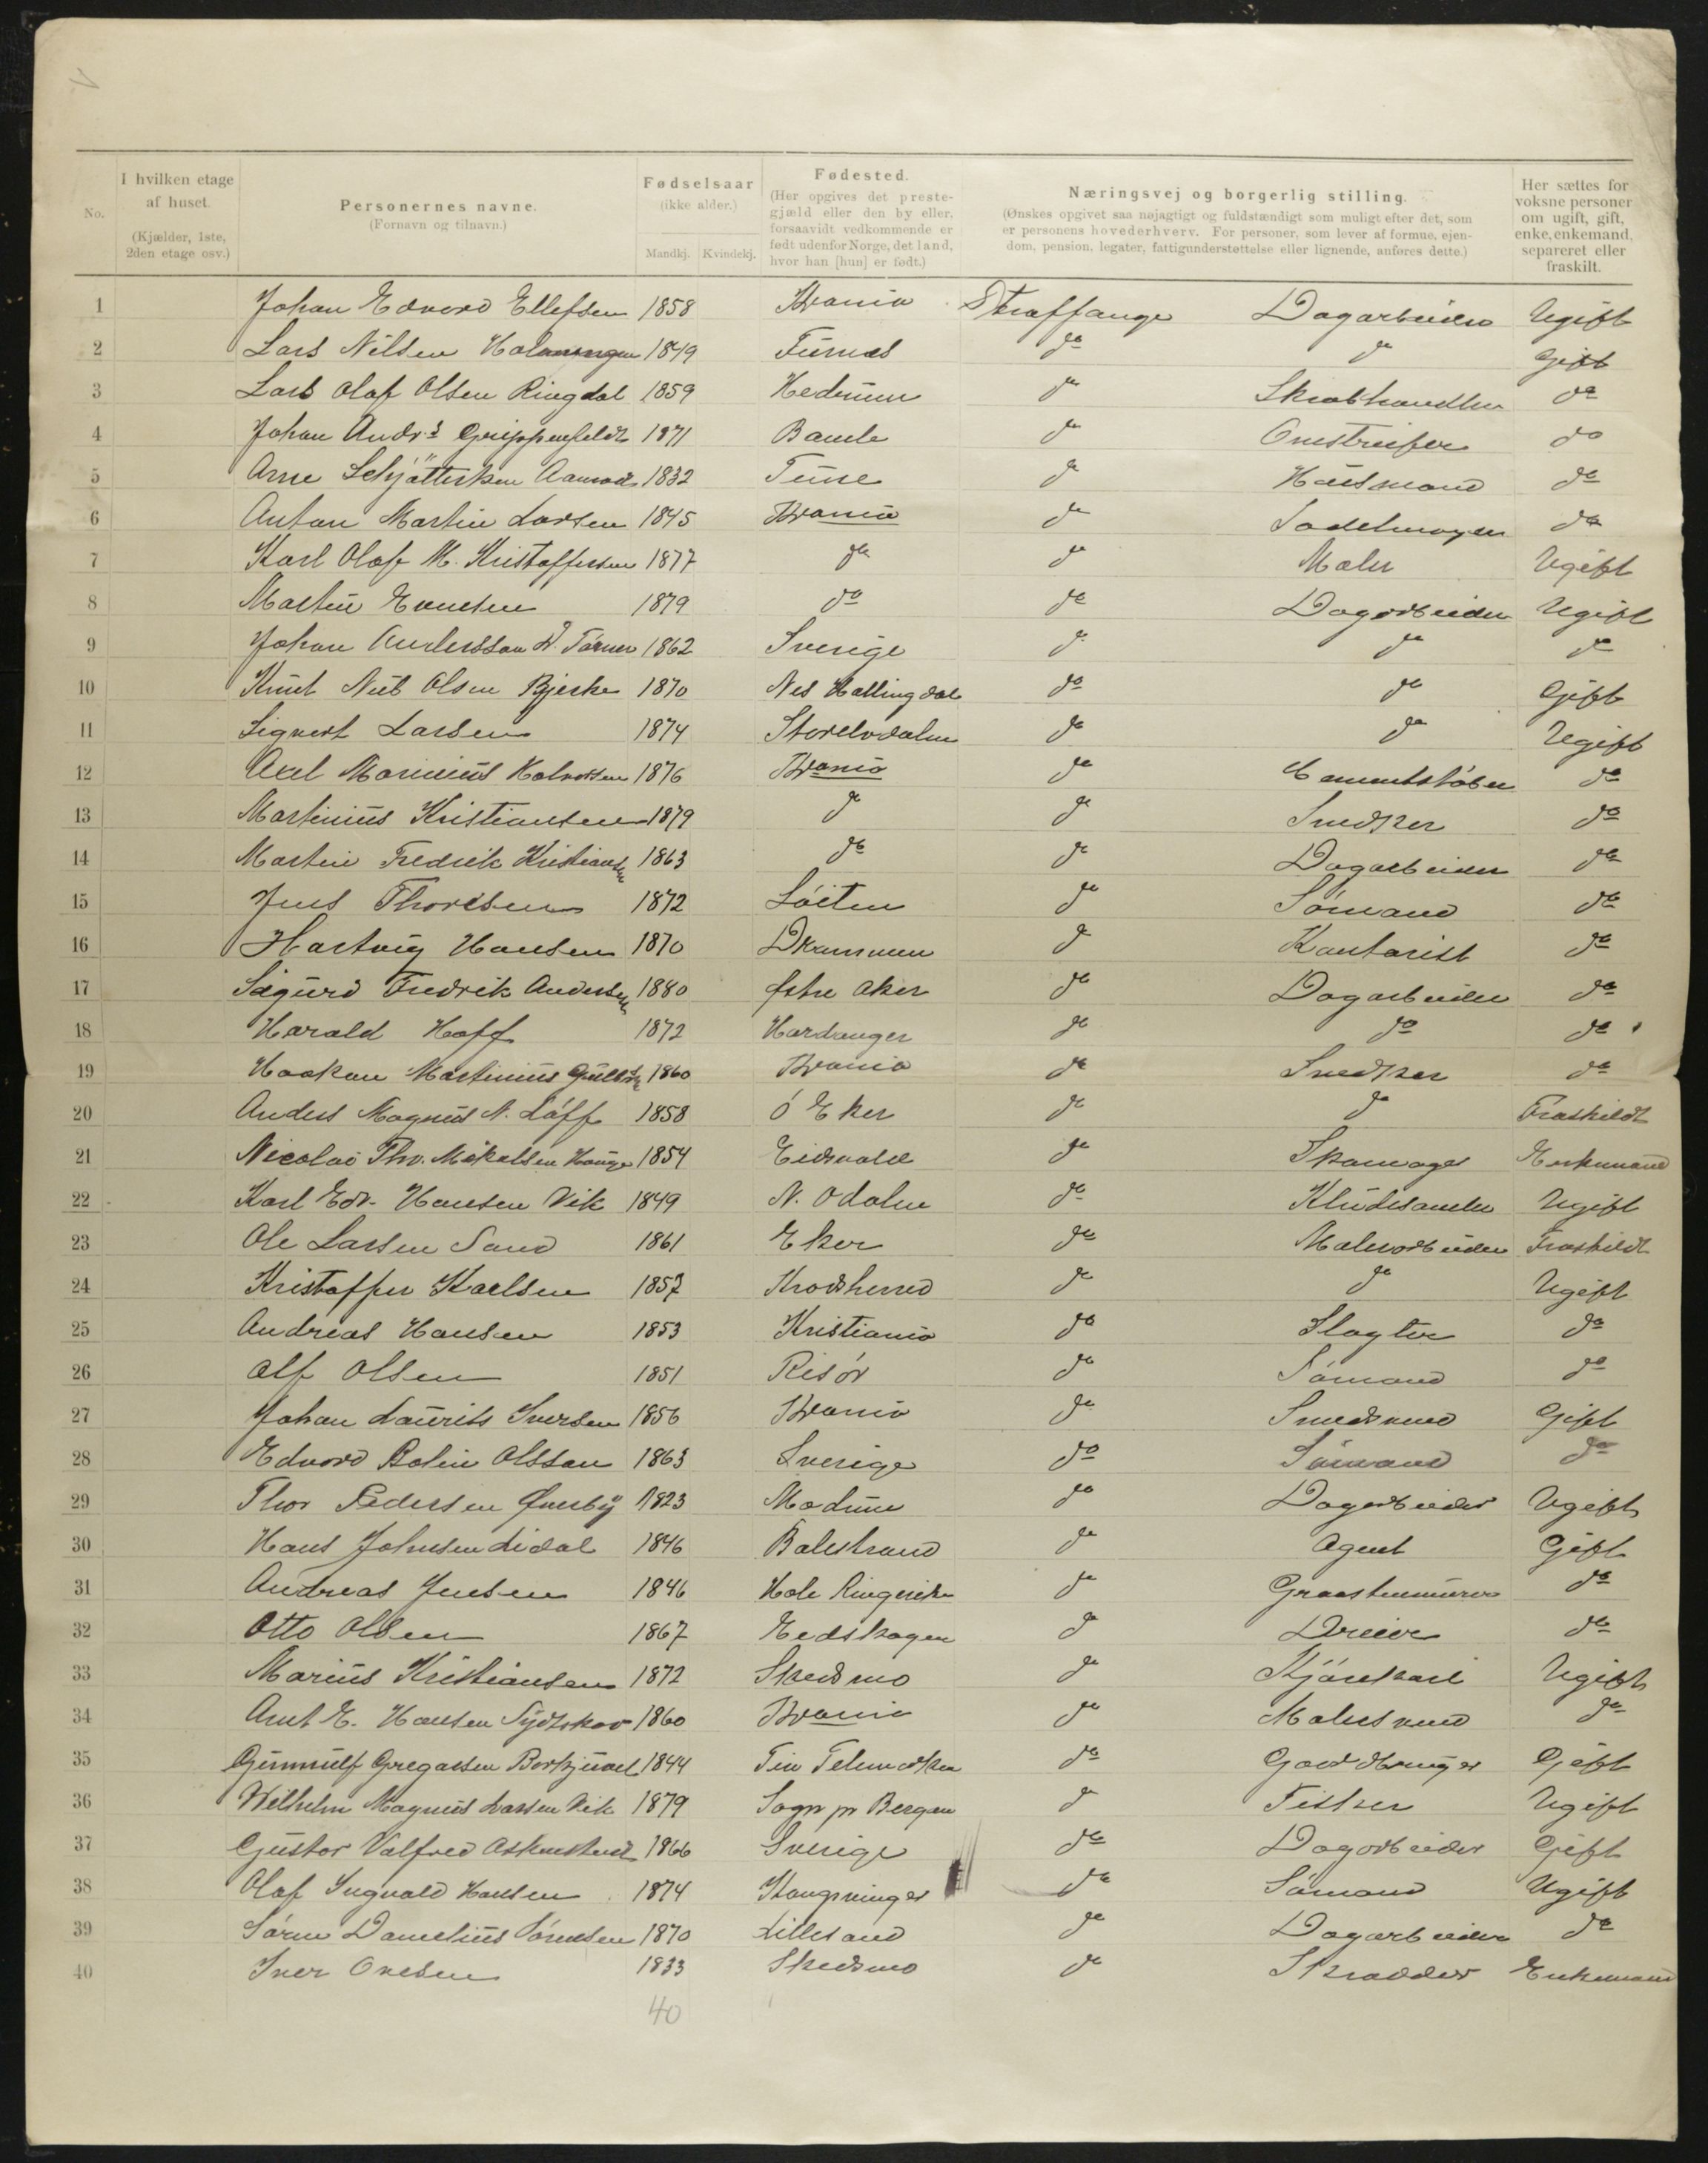 No.
I hvilken etage
af huset.
(Kjælder, 1ste,
2den etage osv.)
Personernes navne.
(Fornavn og tilnavn.)
Fødselsaar
(ikke alder.)
Mandkj. Kvindekj.
Fødested.
(Her opgives det preste-
gjæld eller den by eller,
forsaavidt vedkommende er
født udenfor Norge, det land,
hvor han [hun] er født.)
Næringsvej og borgerlig stilling.
(Ønskes opgivet saa nøjagtigt og fuldstændigt som muligt efter det, som
er personens hovederhverv. For personer, som lever af formue, ejen-
dom, pension, legater, fattigunderstøttelse eller lignende, anføres dette.)
Her sættes for
voksne personer
om ugift, gift,
enke, enkemand,
separeret eller
fraskilt.
1 Johan Edvard Ellefsen 1858 Krania Straffange Dagarbeider Ugift
2 Lars Nilsen 1849 Furnes do do Gift
3 Lars Olaf Olsen Ringdal 1859 Hedrum do Skrabhandler do
4 Johan Andrs Grippenfeldt 1871 Bamle do Omstreifer do
5 Arne 1832 Tune do Husmand do
6 Anton Martin Larsen 1845 Krania do Sadelmager do
7 Karl Olaf M. Kristoffersen 1877 do do Maler Ugift
8 Martin Evensen 1879 do do Dagarbeider Ugift
9 Johan Andersson 1862 Sverige do do do
10 Knut Nils Olsen Bjerke 1870 Nes Hallingdal do do Gift
11 Sigvert Larsen 1874 Storelvdalen do do Ugift
12 Axel Marinius Halvorsen 1876 Krania do Cementstøber do
13 Martinius Kristiansen 1879 do do Snedker do
14 Martin Fredrik Kristiansen 1863 do do Dagarbeider do
15 Jens Thoresen 1872 Løiten do Sømand do
16 Hartvig Hansen 1870 Drammen do Kontorist do
17 Sigurd Fredrik Andersen 1880 Østre Aker do Dagarbeider do
18 Harald Hoff 1872 Hardanger do do do
19 Haakon Martinius 1860 Krania do Snedker do
20 Anders Magnus N. Løff 1858 Ø Eker do do Fraskildt
21 Nicolai Thv. Mikelsen Hauge 1854 Eidsvold do Skomager Enkemand
22 Karl Edv. Hansen Vik 1849 N. Odalen do Kludesamler Ugift
23 Ole Larsen Sand 1861 Eker do Malerarbeider Fraskildt
24 Kristoffer Karlsen 1857 Krødsherred do do Ugift
25 Andreas Hansen 1853 Kristiania do Slagter do
26 Alf Olsen 1851 Risør do Sømand do
27 Johan Laurits Iversen 1856 Krania do Smedsvend Gift
28 Edvard Bolin Olsson 1863 Sverige do Sømand do
29 Thor Pedersen Øverby 1823 Modum do Dagarbeider Ugift
30 Hans Johnsen Lidal 1846 Balestrand do Agent Gift
31 Andreas Jensen 1846 Hole Ringerike do Graastensmurer do
32 Otto Olsen 1867 Eidskogen do Dreier do
33 Marius Kristiansen 1872 Skedsmo do Kjørekarl Ugift
34 Arnt E. Hansen Sydskov 1860 Krania do Malersvend do
35 Gunnulf Gregarsen 1844 Tin Telemarken do Gaardbruger Gift
36 Wilhelm Magnus Larsen Vik 1879 Sogn pr Bergen do Fisker Ugift
37 Gustav Valfred 1866 Sverige do Dagarbeider Gift
38 Olaf Ingvald Hansen 1874 Kongsvinger do Sømand Ugift
39 Søren Danielius Sørensen 1870 Lillesand do Dagarbeider do
40 Iver Ovesen 1833 Skedsmo do Skrædder Enkemand
40